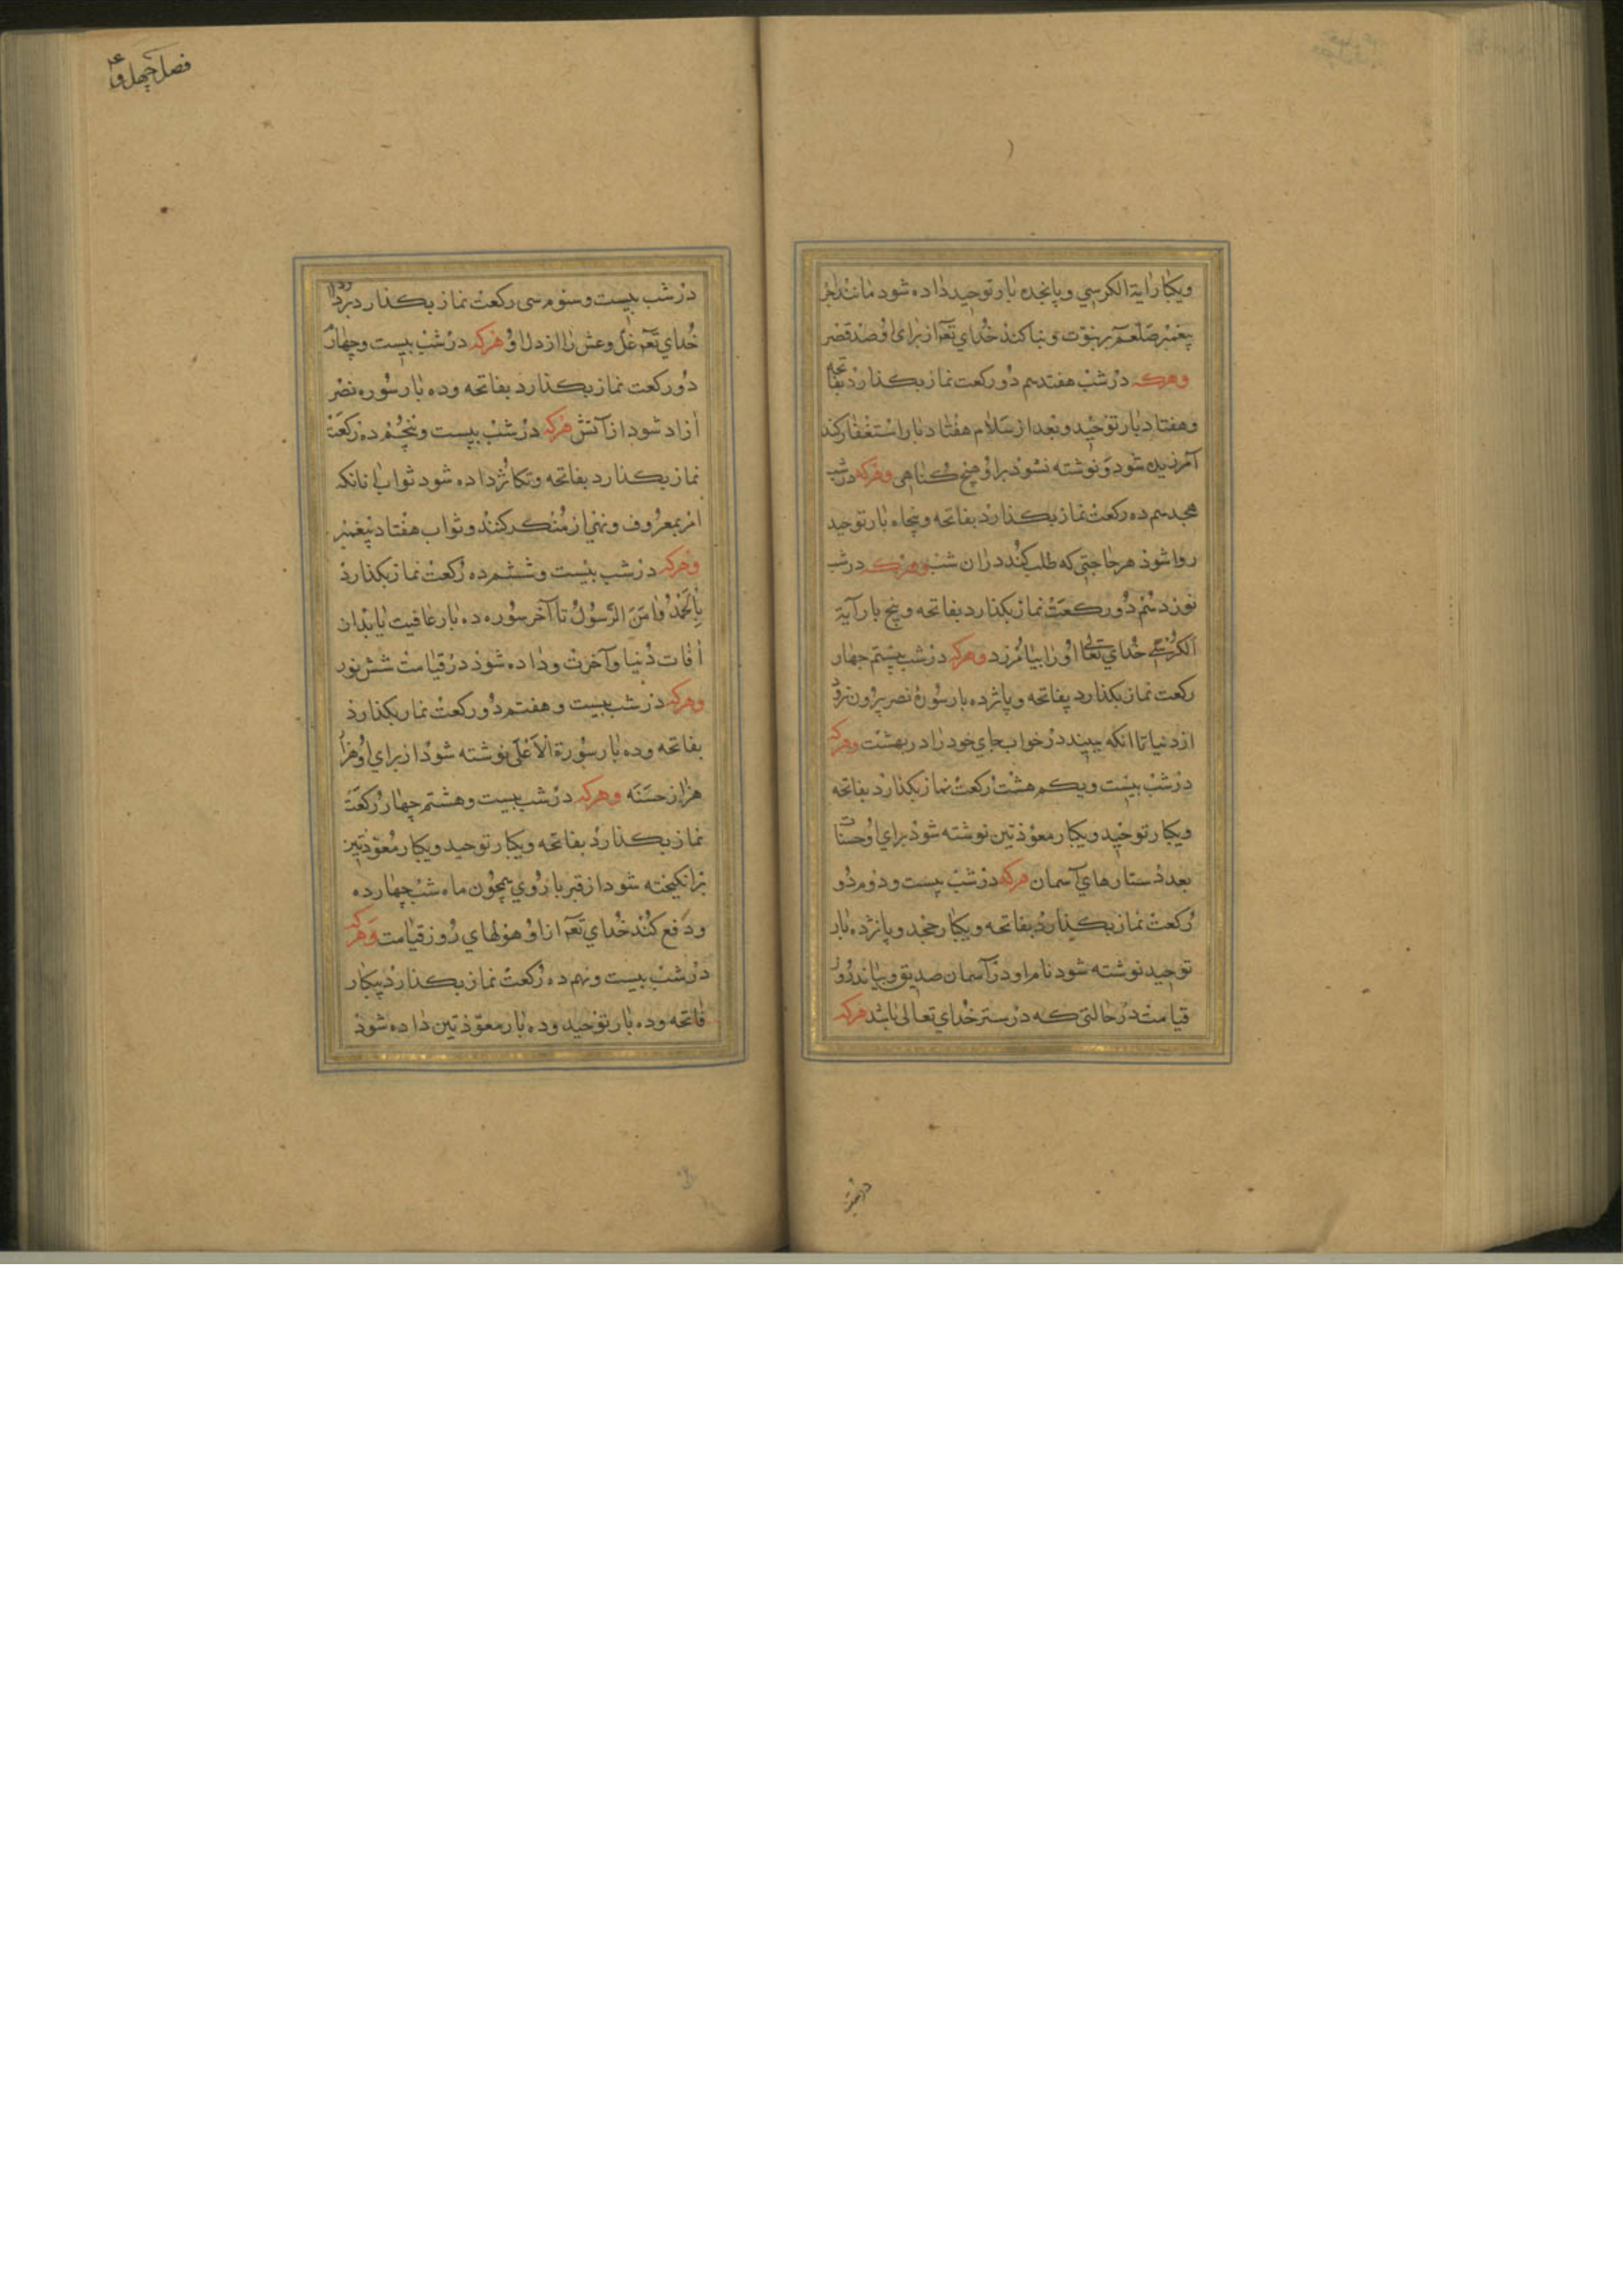 فصل چهل و
ویکبار آیة الکرسی و پانجده بار توحید داده شود مانند اجر
پیغمبر صلعم بر نبوّت و بنا کند خدای تعّه از برای او صد قصر
وهرکه در شب هفتدهم دو رکعت نماز بکذارد بفاتحه
و هفتاد بار توحید و بعد از سلام هفتاد بار استغفار کند
آمرزیده شود و نوشته نشود برا و هیچ کناهی وهرکه در شب
هجدهم ده رکعت نماز بکذارد بفاتحه و پنجاه بار توحید
روا شود هر حاجتی که طلب کند در ان شب وهرکه در شب
نوزدهم دو رکعت نماز بکذارد بفاتحه و پنج بار آیة
الکرسی خدای تعالی او را بیامرزد وهرکه در شب بیستم چهار
رکعت نماز بکذارد بفاتحه و پانزده بار سورۀ نصر بیرون نرود
از دنیا تا انکه ببیند در خواب جای خود را در بهشت وهرکه
در شب بیست ویکم هشت رکعت نماز بکذارد بفاتحه
ویکبار توحید ویکبار معوّذتین نوشته شود برای او حسنات
بعدد ستارهای آسمان هرکه در شب بیست و دوم دو
رکعت نماز بکذارد بفاتحه و یکبار جحد و پانزده بار
توحید نوشته شود نام او در آسمان صدیق و بیاید روز
قیامت در حالتی که در ستر خدای تعالی باشد هرکه
در شب
در شب بیست و سوم سی رکعت نماز بکذارد بردارد
خدای تعّه غلّ و غش را از دل او هرکه در شب بیست و چهارم
دو رکعت نماز بکذارد بفاتحه و ده بار سوره نصر
ازاد شود از آتش هرکه در شب بیست و پنجم ده رکعت
نماز بکذارد بفاتحه و تکاثر داده شود ثواب انانکه
امر بمعروف و نهی از منکر کنند و ثواب هفتاد پیغمبر
وهرکه در شب بیست و ششم ده رکعت نماز بکذارد
بِالحَمْدُ وامَنَ الرّسُولُ تا آخر سوره ده بار عافیت یابد از
افات دنیا و آخرت و داده شود در قیامت شش نور
وهرکه در شب بیست و هفتم دو رکعت نماز بکذارد
بفاتحه و ده بار سورة الاعلی نوشته شود از برای او هزار
هزار حسنه وهرکه در شب بیست و هشتم چهار رکعت
نماز بکذارد بفاتحه ویکبار توحید ویکبار معوّذتین
برانکیخته شود از قبر با روی همچون ماه شب چهارده
و دفع کند خدای تعّه ازاو هولهای روز قیامت وهرکه
در شب بیست و نهم ده رکعت نماز بکذارد بیکبار
فاتحه و ده بار توحید و ده بار معوّذتین داده شود